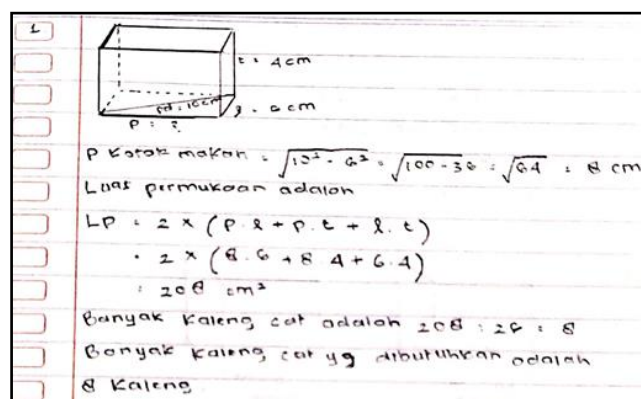 1
t = 4 cm
pd = 10 cm
l = 6 cm
P = ?
P Kotak makan = √10² - 6² = √100 - 36 = √64 = 8 cm
Luas permukaan adalah
LP = 2 × (P.l + P.t + l.t)
= 2 × (8.6 + 8 4 + 6.4)
= 208 cm²
Banyak Kaleng cat adalah 208 : 26 = 8
Banyak Kaleng cat yg dibutuhkan adalah
8 Kaleng